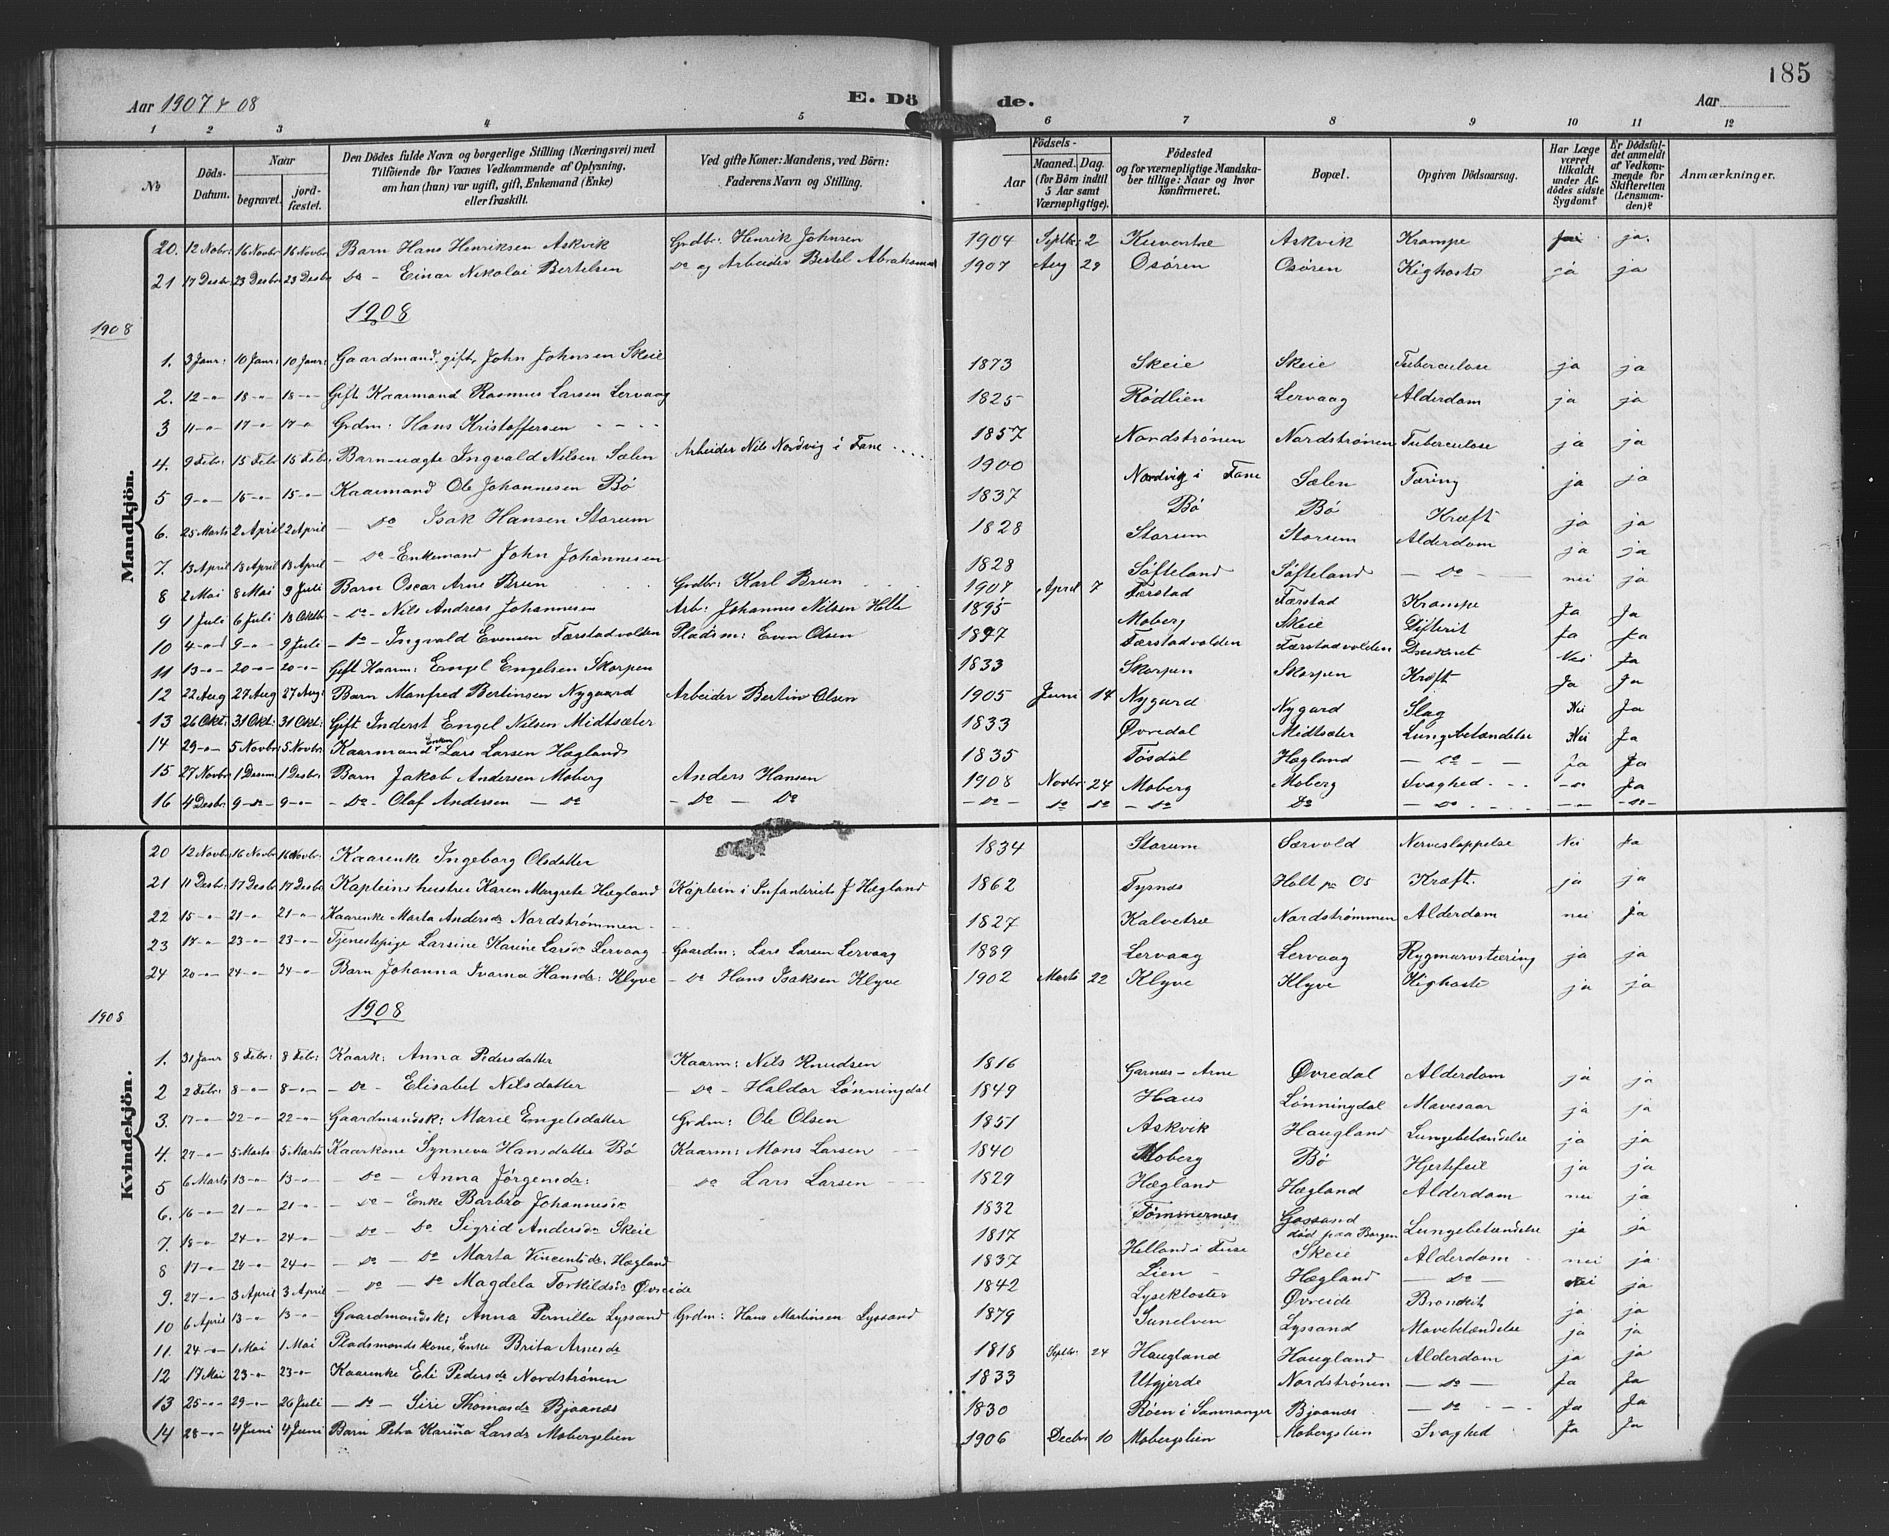 185
Aar 1907 & 08 E. Döde. Aar
1 2 3 4 5 6 7 8 9 10 11 12
No Döds-Datum. Naar begravet. jordfæstet. Den Dödes fulde Navn og borgerlige Stilling (Næringsvei) med Tilföiende for Voxnes Vedkommende af Oplysning, om han (hun) var ugift, gift, Enkemand (Enke) eller fraskilt. Ved gifte Koner: Mandens, ved Börn: Faderens Navn og Stilling. Födsels- Aar Maaned. Dag. (for Börn indtil 5 Aar samt Værnepligtige). Födested og for værnepligtige Mandskaber tillige: Naar og hvor konfirmeret. Bopæl. Opgiven Dödsaarsag. Har Læge været tilkaldt under Afdödes sidste Sygdom? Er Dödsfaldet anmeldt af Vedkommende for Skifteretten (Lensmanden)? Anmærkninger.
Mandkjön.
20. 12 Nobr: 16 Novbr 16 Novbr Barn Hans Henriksen Askvik Grdbr: Henrik Johnsen 1904 Septbr: 2 Kuventræ Askvik Krampe ja ja.
21 17 Desbr 23 Desbr 23 Desbr Do - Einar Nikolai Bertelsen Do og Arbeider Bertel Abrahamsen 1907 Aug 29 Osøren Osøren Kighoste ja ja
1908
1908
1. 3 Janr: 10 Janr: 10 Janr: Gaardmand, gift, John Johnsen Skeie 1873 Skeie Skeie Tuberculose ja ja
2. 12 -"- 18 -"- 18 -"- Gift Kaarmand Rasmus Larsen Lervaag 1825 Rødlien Lervaag Alderdom ja ja
3 11 -"- 17 -"- 17 -"- Grdm: Hans Kristoffersen - - - - 1857 Nordstrønen Nordstrønen Tuberculose ja ja
4. 9 Febr: 15 Febr 15 Febr. Barn-uægte Ingvald Nilsen Sælen Arbeider Nils Nordvig i Fane 1900 Nordvig i Fane Sælen Tæring ja ja
5 9 -"- 15 -"- 15 -"- Kaarmand Ole Johannesen Bø 1837 Bø Bø Kræft ja ja
6. 25 Marts 2 April 2 April - Do Isak Hansen Storum 1828 Storum Storum Alderdom ja ja
7. 13 April 18 April 18 April - Do Enkemand John Johannesen 1828 Søfteland Søfteland - Do - nei ja
8 2 Mai 8 Mai 9 Juli Barn Oscar Arne Brun Grdbr: Karl Brun 1907 April 7 Færstad Færstad Krampe Ja Ja
9 1 Juli 6 Juli 18 Oktb - Do - Nils Andreas Johannesen Arb: Johannes Nilsen Hille 1895 Moberg Skeie Difterit Ja Ja
10 4 -"- 9 -"- 9 Juli - Do - Ingvald Evensen Færstadvolden Pladsm: Even Olsen 1897 Færstadvolden Færstadvolden Druknet Nei Ja
11 13 -"- 20 -"- 20 -"- Gift Kaarm: Engel Engelsen Skorpen 1833 Skorpen Skorpen Kræft Ja Ja
12 22 Aug 27 Aug 27 Aug: Barn Manfred Bertinsen Nygaard Arbeider Bertin Olsen 1905 Juni 14 Nygard Nygard Slag Nei Ja
13 26 Okt. 31 Okt: 31 Okt: Gift Inderst Engel Nilsen Midtsæter 1833 Øvredal Midtsæter Lungebetændelse Nei Ja
14 29 -"- 5 Novbr 5 Novbr Kaarmand Enkem Lars Larsen Hægland 1835 Tøsdal Hægland - Do - Ja Ja
15 27 Novbr 1 Desem 1 Desbr Barn Jakob Andersen Moberg Anders Hansen 1908 Novbr 24 Moberg Moberg Svaghed - "- Ja
16 4 Desbr 9 -Do- 9 -"- - Do - Olaf Andersen - Do - Do - Do - Do - Do Do - Do Do - Do - -"- -Do-
Kvindekjön.
20 12 Novbr 16 Novbr 16 Novbr: Kaarenke Ingeborg Olsdatter 1834 Storum Særvold Nerveslappelse Nei Ja
21 11 Desbr 17 Desb 17 Desb Kapteins hustru Karen Margrete Hægland Kaptein i Infanteriet J Hægland 1862 Tysnæs Holt pr Os Kræft. ja ja
22 15 -"- 21 -"- 21 -"- Kaarenke Marta Andersdr Nordstrømmen 1827 Kalvetræ Nordstrømmen Alderdom nei ja
23 17 -"- 23 -"- 23 -"- Tjenestepige Larsine Karine Larsdr Lervaag Gaardm: Lars Larsen Lervaag 1889 Lervaag Lervaag Rygmarvstæring ja ja
24 20 -"- 24 -"- 24 -"- Barn Johanna Ivarna Hansdr: Klyve - Do Hans Isaksen Klyve 1902 Marts 22 Klyve Klyve Kighoste ja ja
1908
1908
1. 31 Janr 8 Febr: 8 Febr: Kaark: Anna Pedersdatter Kaarm: Nils Knudsen 1816 Garnes - Arne Øvredal Alderdom ja ja
2 2 Febr. 8 -"- 8 -"- - Do - Elisabet Nilsdatter - Do - Haldor Lønningdal 1849 Haus Lønningdal Mavesaar ja ja
3. 17 -"- 22 -"- 22 -"- Gaardmandsk: Marie Engelsdatter Grdm: Ole Olsen 1851 Askvik Haugland Lungebetændelse ja ja
4. 27 -"- 5 Marts 5 Marts Kaarkone Synneva Hansdatter Bø Kaarm: Mons Larsen 1840 Moberg Bø Hjertefeil ja ja
5 6 Marts 13 -"- 13 -"- - Do - Anna Jørgensdr: - Do Lars Larsen 1829 Hægland Hægland Alderdom nei ja
6. 16 -"- 21 -"- 21 -"- - Do - Enke Barbro Johannesdr 1832 Tømmernæs Gassand død paa Bergen Lungebetændelse ja ja
7. 18 -"- 24 -"- 24 -"- - Do - Do Sigrid Andersdr Skeie 1817 Helland i Fuse Skeie Alderdom nei ja
8 17 -"- 24 -"- 24 -"- - Do - Do Marta Vincentsdr Hægland 1837 Lien Hægland - Do - nei ja
9. 27 -"- 3 April 3 April Do - Do Magdela Torkildsdr Øvreide 1842 Lysekloster Øvreide Bronkit ja ja
10 6 April 13 -"- 13 -"- Gaardmandsk: Anna Pernille Lyssand Grdm: Hans Martinsen Lyssand 1879 Sunelven Lyssand Mavebetændelse ja ja
11. 24 -"- 1 Mai 1 Mai Pladsmandskone, Enke Brita Arnesdr 1818 Septbr: 24 Haugland Haugland Alderdom ja ja
12 17 Mai 23 -"- 23 -"- Kaarenke Eli Pedersdr Nordstrønen 1833 Utgjerde Nordstrønen - Do - Ja Ja
13 25 -"- 29 -"- 26 Juli - Do - Siri Thomasdr Bjaanæs 1830 Røen i Sammanger Bjaanæs - Do - Ja Ja
14 28 -"- 4 Juni 4 Juni Barn Petra Karina Larsdr Mobergslien 1906 Decbr 10 Mobergslien Mobergslien Svaghed Ja Ja